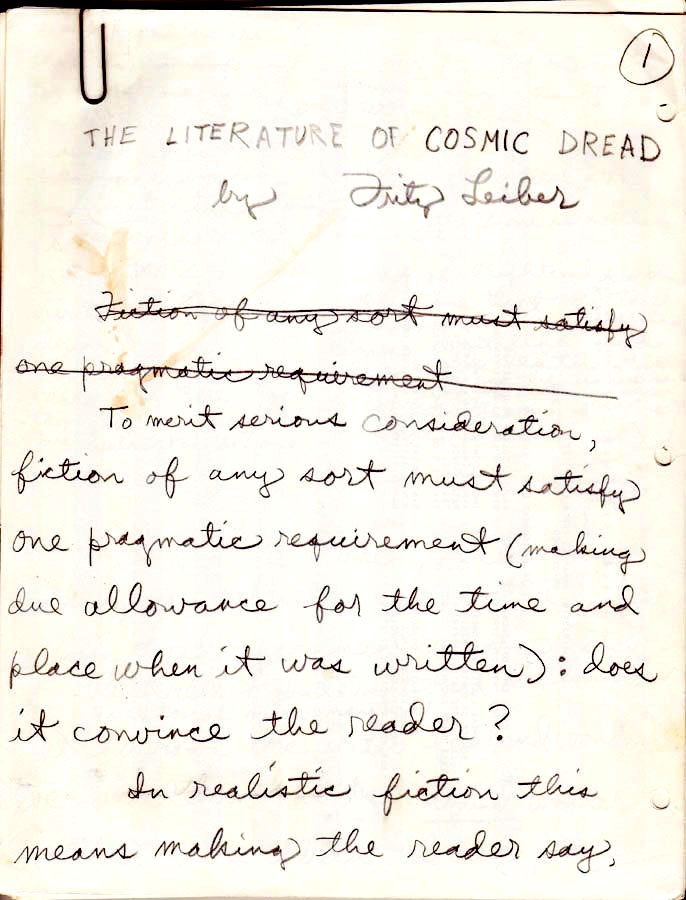 1
THE LITERATURE OF COSMIC DREAD
by Fritz Leiber
Fiction of any sort must satisfy
one pragmatic requirement
To merit serious consideration,
fiction of any sort must satisfy
one pragmatic requirement (making
due allowance for the time and
place when it was written): does
it convince the reader?
In realistic fiction this
means making the reader say,